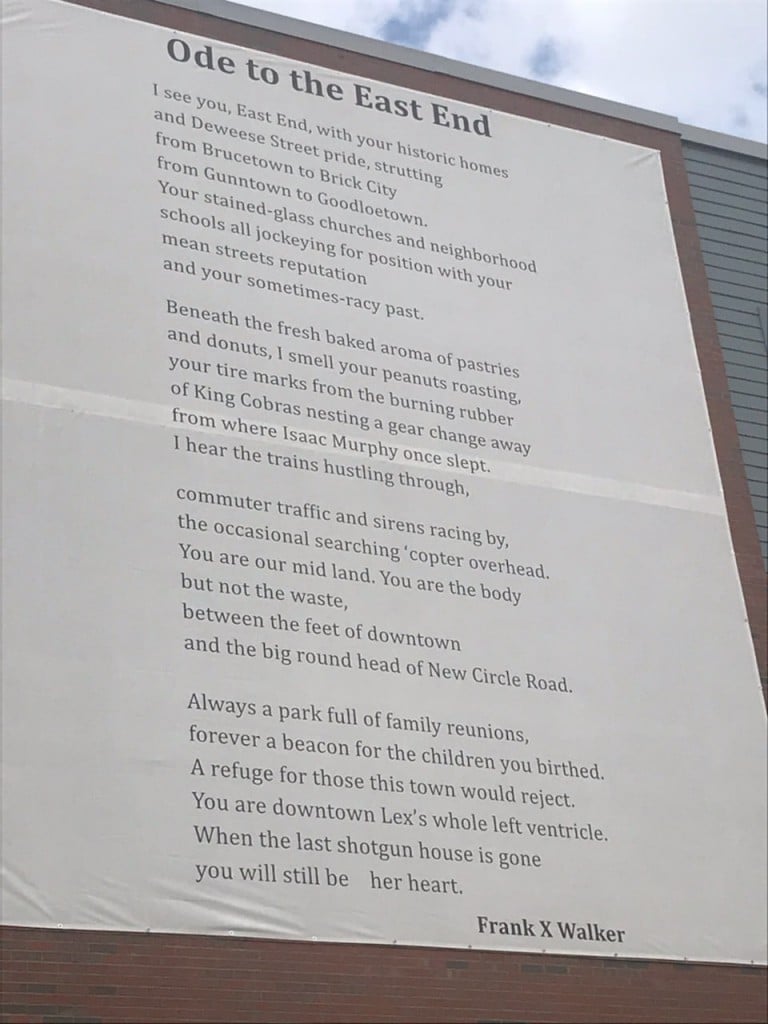 Ode to the East End
I see you, East End, with your historic homes
and Deweese Street pride, strutting
from Brucetown to Brick City
from Gunntown to Goodloetown.
Your stained-glass churches and neighborhood
schools all jockeying for position with your
mean streets reputation
and your sometimes-racy past.
Beneath the fresh baked aroma of pastries
and donuts, I smell your peanuts roasting,
your tire marks from the burning rubber
of King Cobras nesting a gear change away
from where Isaac Murphy once slept.
I hear the trains hustling through,
commuter traffic and sirens racing by,
the occasional searching ‘copter overhead.
You are our mid land. You are the body
but not the waste,
between the feet of downtown
and the big round head of New Circle Road.
Always a park full of family reunions,
forever a beacon for the children you birthed.
A refuge for those this town would reject.
You are downtown Lex’s whole left ventricle.
When the last shotgun house is gone
you will still be her heart.
Frank X Walker